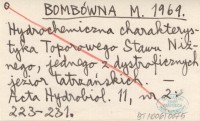 BOMBÓWNA M. 1969.
Hydrochemiczna charakterys-
tyka Toporowego Stawu Niż-
nego, jednego z dystroficznych
jezior tatrzańskich. –
Acta Hydrobiol. 11, nr 2:
223-231.